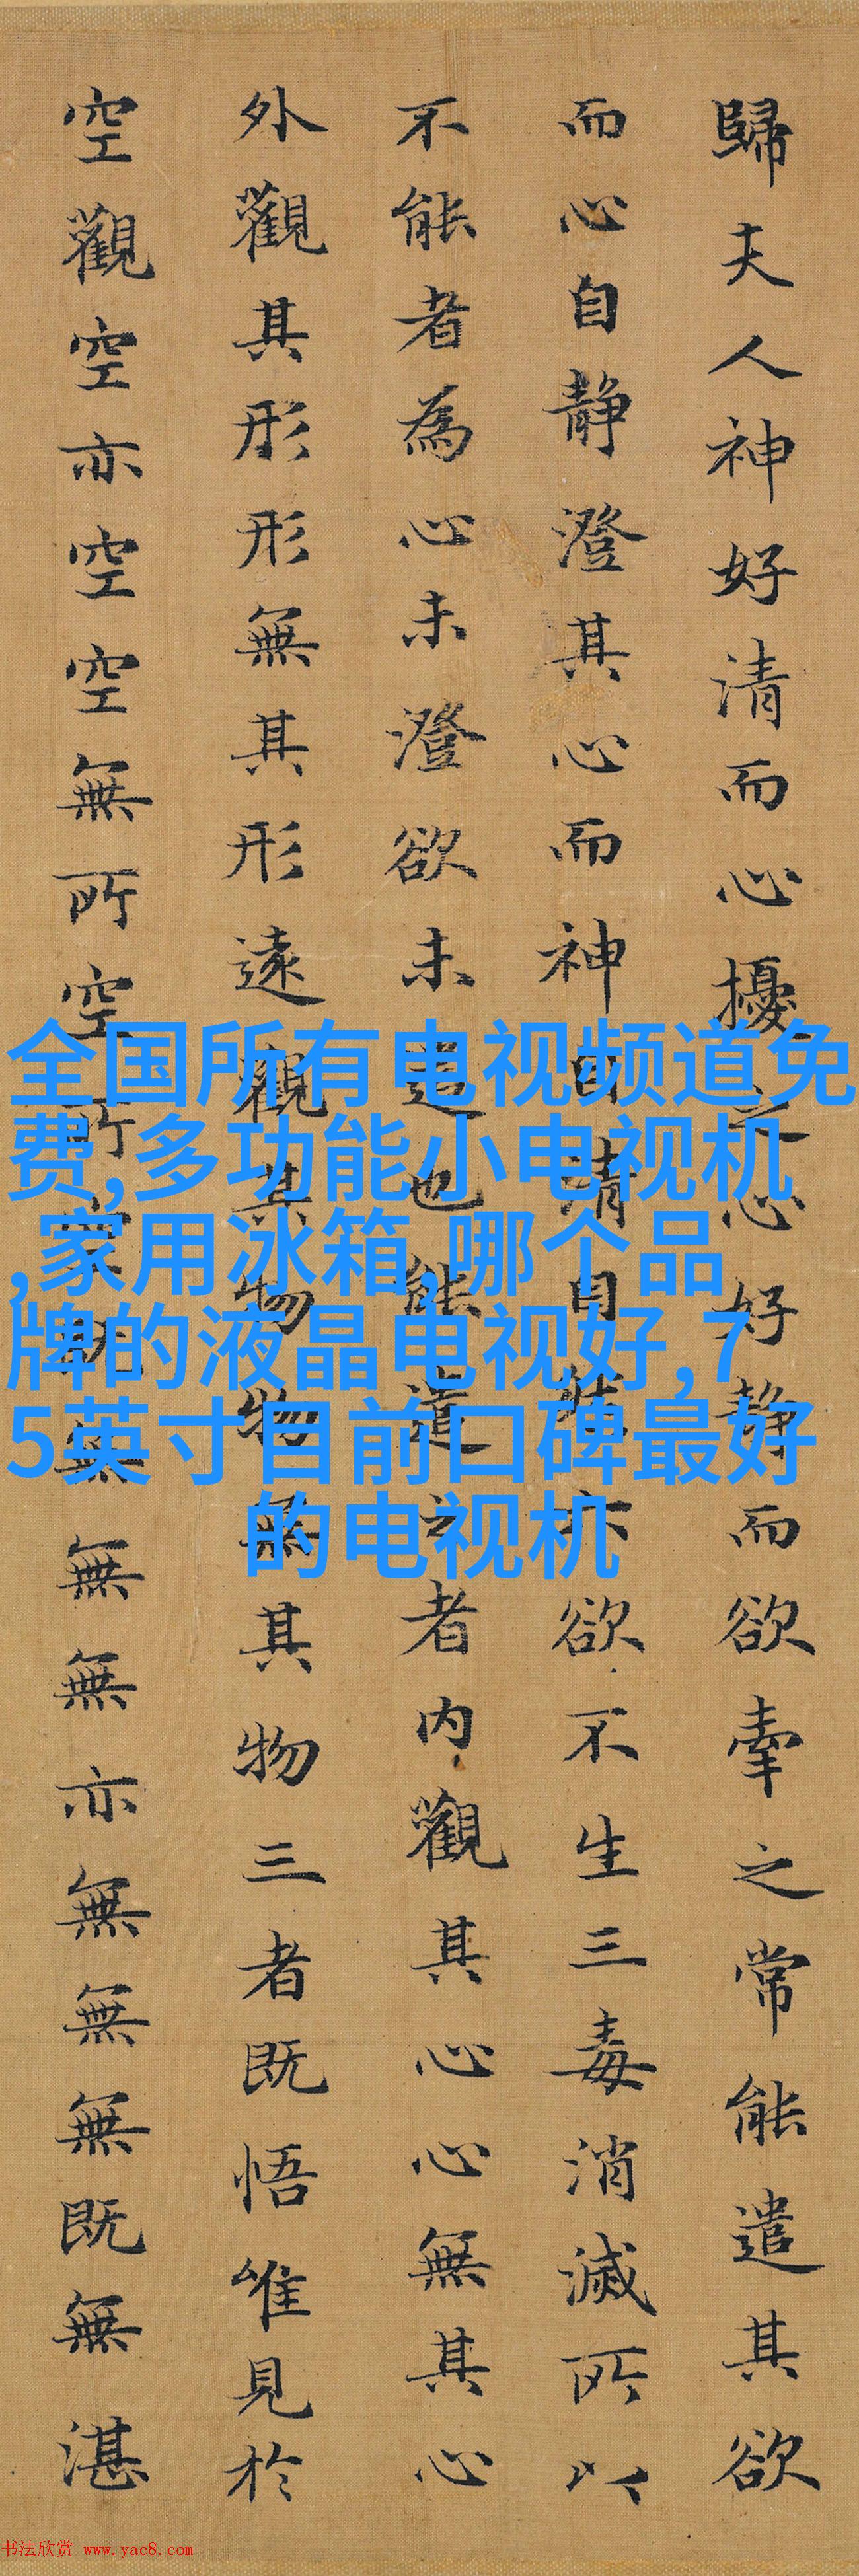 歸夫人神好清而心擾之心好静而欲牽之常能遣其欲
而心自静澄其心而神自清自然六欲不生三毒消滅所以
不能者為心未澄欲未遣也能遣之者内觀其心心無其心
外觀其形形無其形遠觀其物物無其物三者既悟唯見於
空觀空亦空空無所空所空既無無無亦無無無既無湛
全国所有电视频道免
费,多功能小电视机
,家用冰箱,哪个品
牌的液晶电视好,7
5英寸目前口碑最好
的电视机
书法欣赏 www.yac8.com